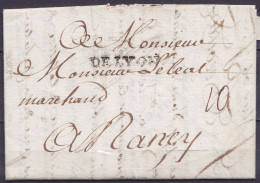 A Monsieur
DE LYON
Monsieur Leleal
marchand 10
A Nancy